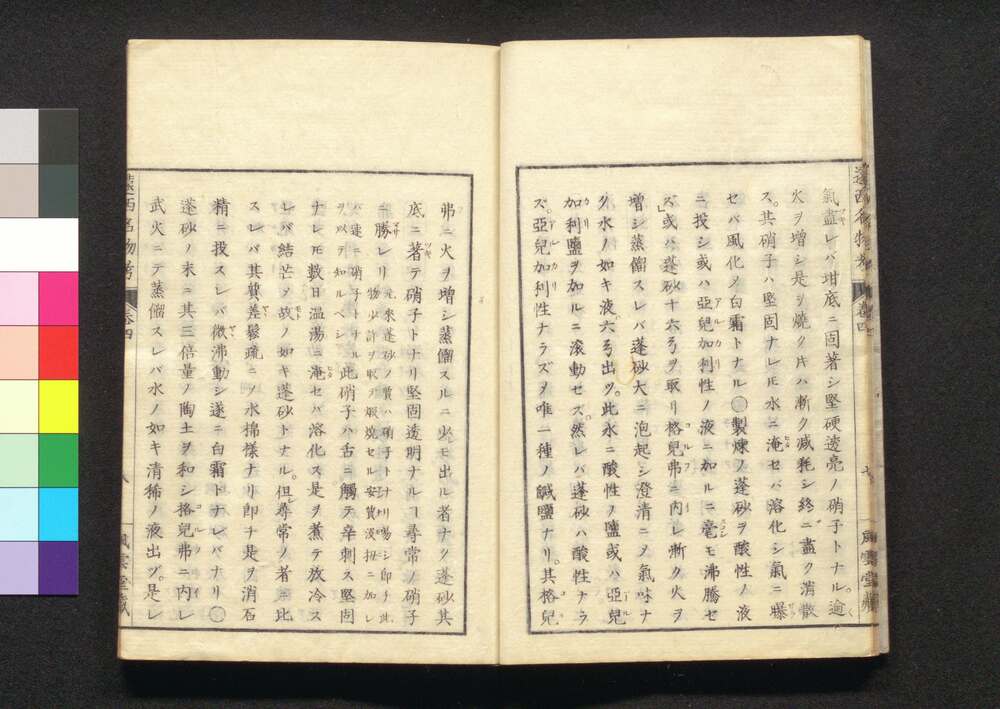 氣盡レバ坩底ニ固著シ堅硬透亮ノ硝子トナル。逾
火ヲ增シ是ヲ燒ク片ハ漸ク減耗シ終ニ盡ク消散
ス。其硝子ハ堅固ナレ𪜈水ニ淹セバ溶化シ氣ニ曝
セバ風化〆白霜トナル〇製煉ノ蓬砂ヲ酸性ノ液
ニ投シ或ハ亞兒加利性ノ液ニ加ルニ毫モ沸騰セ
ズ或ハ蓬砂十六弓ヲ取リ格兒弗ニ内レ漸ク火ヲ
增シ蒸餾スレバ蓬砂大ニ泡起シ澄清ニ〆氣味ナ
ク水ノ如キ液六弓出ツ。此水ニ酸性ノ鹽或ハ亞兒
加利鹽ヲ加ルニ滚動セズ。然レバ蓬砂ハ酸性ナラ
ズ。亞兒加利性ナラズ〆唯一種ノ鹹鹽ナリ。其格兒
弗ニ火ヲ增シ蒸餾スルニ些モ出ル者ナク蓬砂其
底ニ著テ硝子トナリ堅固透明ナルヿ尋常ノ硝子
ニ勝レリ 元來蓬砂ノ質ハ硝子トナリ易シ即チ此
物少許ヲ取リ煅燒セル安質没扭ニ加レ
バ速ニ硝子トナル此硝子ハ舌ニ觸テ辛刺ス堅固
ヲ以テ知ルベシ
ナレ𪜈數日温湯ニ淹セバ溶化ス是ヲ煮テ放冷ス
レバ結芒〆故ノ如キ蓬砂トナル。但シ尋常ノ者ニ比
スレバ其質差鬆疏ニ〆水掦樣ナリ即チ是ヲ消石
精ニ投スレバ微沸動シ遂ニ白霜トナレバナリ〇
蓬砂ノ末ニ其三倍量ノ陶土ヲ和シ格兒弗ニ内レ
武火ニテ蒸餾スレバ水ノ如キ清稀ノ液出ツ。是レ
遠西名物考
卷四
八
風雲堂藏